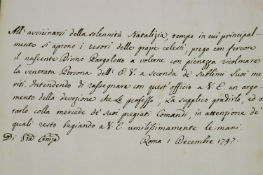 All'avvicinarsi della solennità Natalizia, tempo in cui principal-
mente si aprono i tesori delle grazie celesti, prego con fervore
il nascente Divino Pargoletto a volere con pienezza ricolmare
la venerata Persona dell' E. V. a seconda de' Sublimi Suoi me-
riti. Intendendo di rassegnare con quest' officio a V. E. un argo-
mento della devozione che Le professo, La supplico gradirlo, ed ono-
rarlo colla mercede de' Suoi pregiati Comandi, in attenzione de'
quali resto baciando a V. E. umilissimamente le mani.
Roma 1 Decembre 1797.
Di